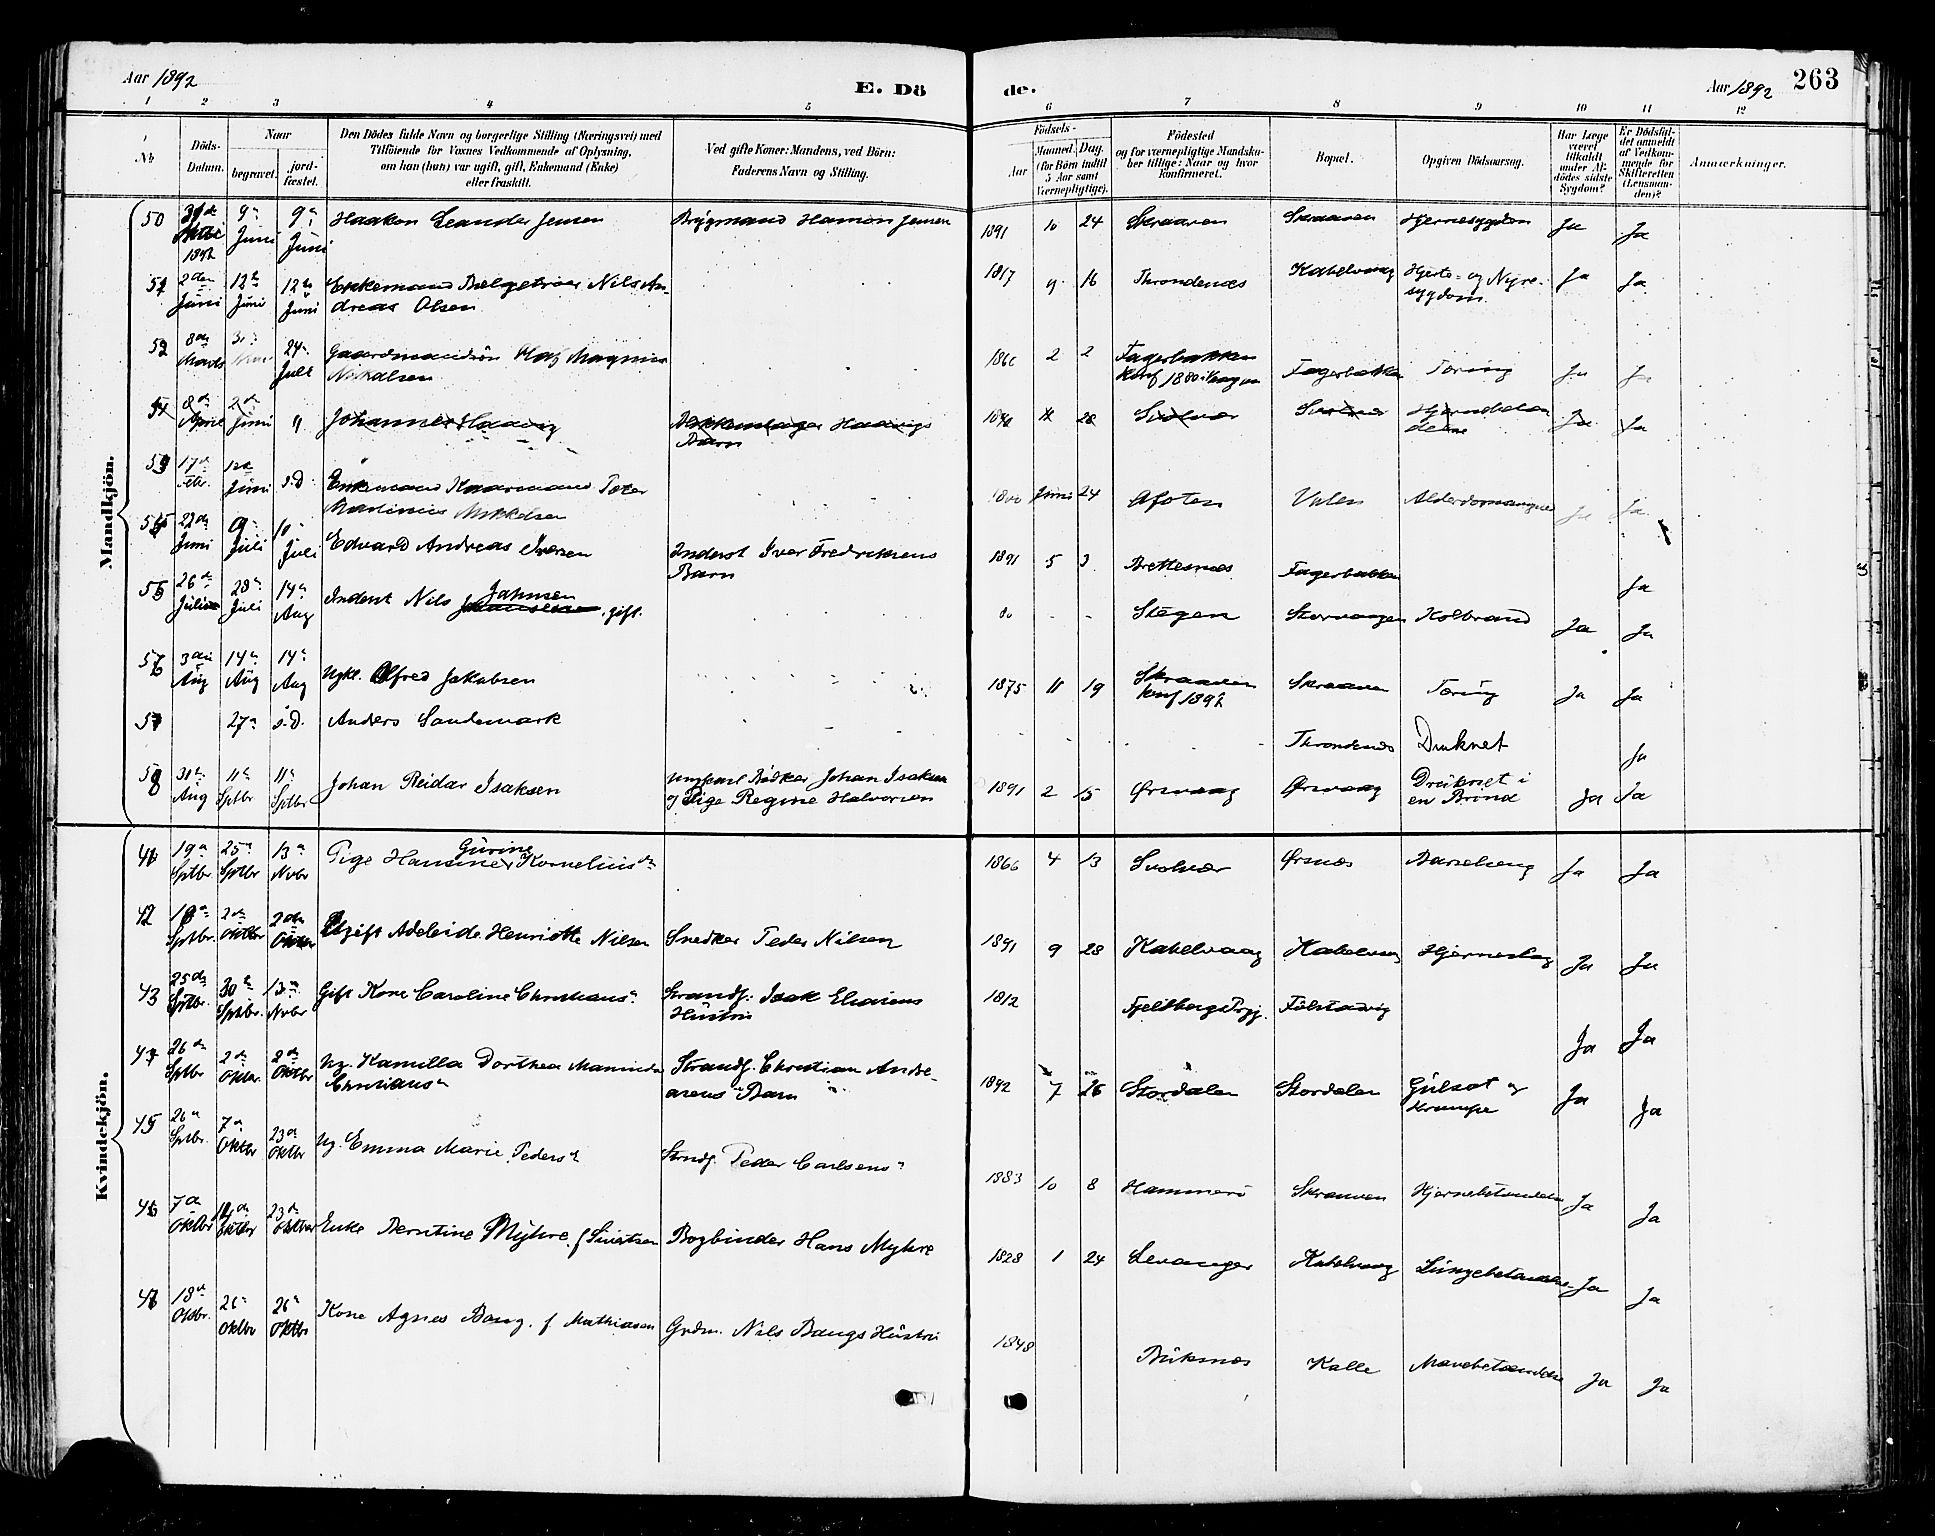 Aar 1892
E. Dö
de.
Aar 1892
263
1 2 3 4 5 6 7 8 9 10 11 12
No
Döds-
Datum.
Naar
begravet.
jord-
fæstet.
Den Dödes fulde Navn og borgerlige Stilling (Næringsvei) med
Tilföiende for Voxnes Vedkommende af Oplysning,
om han (hun) var ugift, gift, Enkemand (Enke)
eller fraskilt.
Ved gifte Koner: Mandens, ved Börn:
Faderens Navn og Stilling.
Födsels-
Aar
Maaned. Dag.
(for Börn indtil
5 Aar samt
Værnepligtige).
Födested
og for værnepligtige Mandska-
ber tillige: Naar og hvor
konfirmeret.
Bopæl.
Opgiven Dödsaarsag.
Har Læge
været
tilkaldt
under Af-
dödes sidste
Sygdom?
Er Dödsfal-
det anmeldt
af Vedkom-
mende for
Skifteretten
(Lensman-
den)?
Anmærkninger.
Mandkjön.
50 9 Juni 9 Juni Haakon Leander Jensen 1891 10 24 Skraaven Skraaven Hjernesygdom Ja Ja
2den Juni 12te Juni 12te Juni Enkemand Nils An-
dreas Olsen 1817 9 16 Throndenæs Kabelvaag Hjerte- og Nyre-
sygdom Ja Ja
52 8de Marts 24 Juli Gaardmandsön Magnus
Nikolsen 2 2 Fagerbakken
Konf 1880 Fagerbakken Tæring Ja Ja
8de April 2d Juni " Johannes Haavig Haavigs
Barn 28 Svolvær Svolvær Ja Ja
17de Febr. 12te Juni s.D. Enkemand Peter
Martinius Mikkelsen Juni 24 Afoten Valen Ja Ja
22de Juni 9 Juli 10 Juli Edvard Andreas Iversen Inderst Iver Fredriksens
Barn 1891 5 3 Brettesnæs Fagerbakken Ja
26de Juli 28 Juli 14 Aug Inderst Nils Jahnsen gift. Stegen Storvaagen Kolbrand Ja Ja
3die Aug 14 Aug 14 Aug Ugkl. Alfred Jakobsen 1875 11 19 Skraaven
konf 1892 Skraaven Tæring Ja Ja
57 27 s.D. Anders Sandemark Throndenæs Druknet Ja
58 31te Aug 11te Sptbr 11te Sptbr Johan Reidar Isaksen Ungkarl Bödker Johan Isaksen
og Pige Regine Halvorsen 1891 2 15 Ørsvaag Ørsvaag Druknet i
en Brönd Ja Ja
Kvindekjön.
41 19de Sptbr 25 Sptbr 13 Novbr Pige Hansine Gurine Kornelius dr 1866 4 13 Svolvær Ørsnæs Barselseng Ja Ja
42 Sptbr. 2de Oktbr 2den Oktbr Ugift Adeleide Henriette Nilsen Snedker Peder Nilsen 1891 9 28 Kabelvaag Kabelvaag Hjerneslag Ja Ja
43 25de Sptbr. 30te Sptbr. 13de Novbr Gift Kone Caroline Christians dr Strandf. Isak Eliasens
Hustru 1812 Fjeldbergs Prgj. Ja Ja
26de Sptbr 2de Oktbr. 2de Oktbr Ug. Kamilla Dorthea
Christians dr Strandf. Christian Andre-
asens Barn 1892 7 26 Stordalen Stordalen Gulsot og
Krampe Ja Ja
45 26de Sptbr. 7de Oktbr 23de Oktbr Ug. Emma Marie Peders dr Strndf. Peder Carlsens dr 1883 10 8 Hammerö Skraaven Hjernebetændelse Ja Ja
46 7de Oktbr Oktbr 23de Oktbr Enke Berntine Myhre f Sivertsen Bogbinder Hans Myhre 1828 1 24 Levanger Kabelvaag Lungebetændelse Ja Ja
18de Oktbr. 26de Oktbr 26de Oktbr Kone Agnes Bang f Mathiasen Grdm. Nils Bangs Hustru 1848 Buksnæs Kalle Mavebetændelse Ja Ja